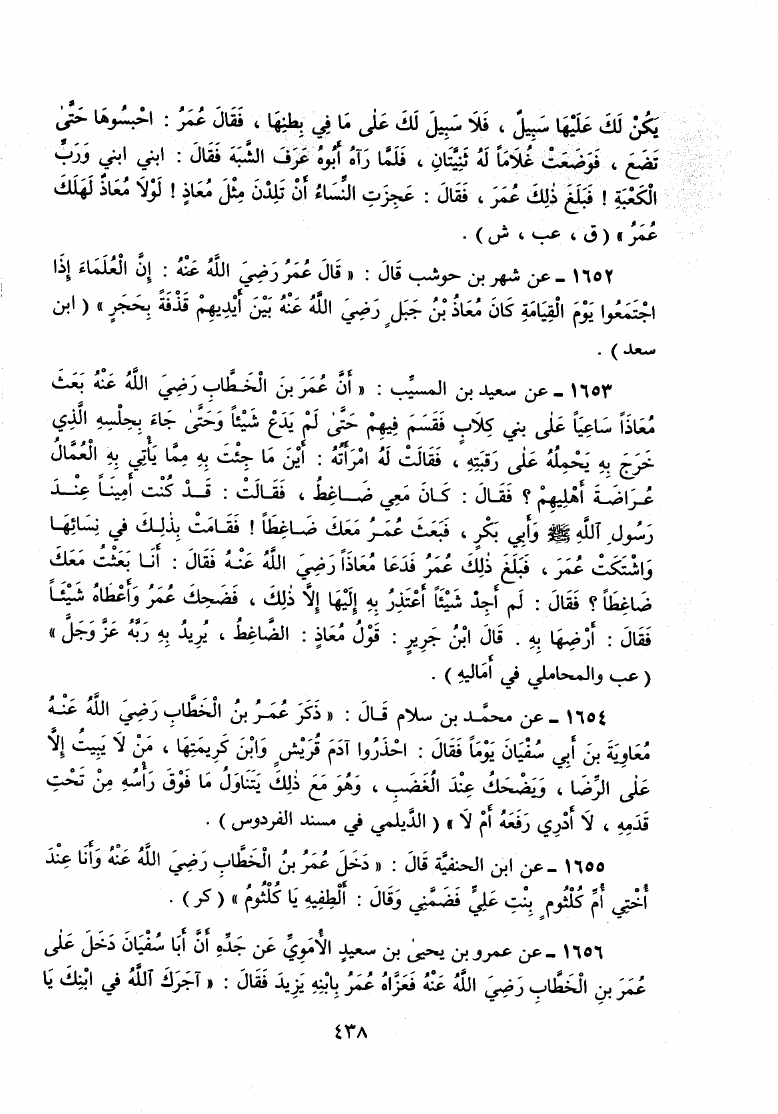 يَكُنْ لَكَ عَلَيْهَا سَبِيلٌ ، فَلَا سَبِيلَ لَكَ عَلَى مَا فِي بِطنِهَا ، فَقَالَ عُمَرُ : احْبِسُوهَا حَتَّى
تَضَعَ ، فَوَضَعَتْ غُلَاماً لَهُ ثَنِيَّتَانِ ، فَلَمَّا رَآهُ أَبُوهُ عَرَفَ الشَّبَهَ فَقَالَ : ابني ابني وَرَبِّ
الْكَعْبَةِ ! فَبَلَغَ ذٰلِكَ عُمَرَ ، فَقَالَ : عَجِزَتِ النِّسَاءُ أَنْ تَلِدْنَ مِثْلَ مُعَاذٍ ! لَوْلَا مُعَاذٌ لَهَلَكَ
عُمَرُ » ( ق ، عب ، ش ) .
١٦٥٢ ـ عن شهر بن حوشب قَالَ : « قَالَ عُمَرُ رَضِيَ اللَّهُ عَنْهُ : إِنَّ الْعُلَمَاءَ إِذَا
اجْتَمَعُوا يَوْمَ الْقِيَامَةِ كَانَ مُعَاذُ بْنُ جَبَلٍ رَضِيَ اللَّهُ عَنْهُ بَيْنَ أَيْدِيهِمْ قَذْفَةً بِحَجَرٍ » ( ابن
سعد ) .
١٦٥٣ ـ عن سعيد بن المسيِّب : « أَنَّ عُمَرَ بنَ الْخَطَّابِ رَضِيَ اللَّهُ عَنْهُ بَعَثَ
مُعَاذاً سَاعِيَاً عَلَى بني كِلَابٍ فَقَسَمَ فِيهِمْ حَتَّى لَمْ يَدَعْ شَيْئاً وَحَتَّى جَاءَ بِحِلْسِهِ الَّذِي
خَرَجَ بِهِ يَحْمِلُهُ عَلَى رَقَبَتِهِ ، فَقَالَتْ لَهُ امْرَأَتُهُ : أَيْنَ مَا جِئْتَ بِهِ مِمَّا يَأْتِي بِهِ الْعُمَّالُ
عُرَاضَةَ أَهْلِيهِمْ ؟ فَقَالَ : كَانَ مَعِي ضَاغِطٌ ، فَقَالَتْ : قَدْ كُنْتَ أَمِينَاً عِنْدَ
رَسُولِ اللَّهِ ﷺ وَأَبِي بَكْرٍ ، فَبَعَثَ عُمَرُ مَعَكَ ضَاغِطَاً ! فَقَامَتْ بِذٰلِكَ في نِسَائِهَا
وَاشْتَكَتْ عُمَرَ ، فَبَلَغَ ذٰلِكَ عُمَرُ فَدَعَا مُعَاذاً رَضِيَ اللَّهُ عَنْهُ فَقَالَ : أَنَا بَعَثْتُ مَعَكَ
ضَاغِطَاً ؟ فَقَالَ : لَم أَجِدْ شَيْئَاً أَعْتَذِرُ بِهِ إِلَيْهَا إِلَّا ذٰلِكَ ، فَضَحِكَ عُمَرُ وَأَعْطَاهُ شَيْئَاً
فَقَالَ : أَرْضِهَا بِهِ . قَالَ ابْنُ جَرِيرٍ : قَوْلُ مُعَاذٍ : الضَّاغِطُ ، يُرِيدُ بِهِ رَبَّهُ عَزَّ وَجَلَّ »
( عب والمحاملي في أَمَاليهِ ) .
١٦٥٤ ـ عن محمَّد بن سلام قَالَ : « ذَكَرَ عُمَرُ بنُ الْخَطَّابِ رَضِيَ اللَّهُ عَنْهُ
مُعَاوِيَةَ بنَ أَبِي سُفْيَانَ يَوْمَاً فَقَالَ : احْذَرُوا آدَمَ قُرَيْشٍ وَابْنَ كَرِيمَتِهَا ، مَنْ لَا يَبِيتُ إِلَّا
عَلَى الرِّضَا ، وَيَضْحَكُ عِنْدَ الْغَضَبِ ، وَهُوَ مَعَ ذٰلِكَ يَتَنَاوَلُ مَا فَوْقَ رَأْسُهِ مِنْ تَحْتِ
قَدَمِهِ ، لَا أَدْرِي رَفَعَهُ أَمْ لَا » ( الدَّيلمي في مسند الفردوس ) .
١٦٥٥ ـ عن ابن الحنفيَّة قَالَ : « دَخَلَ عُمَرُ بنُ الْخَطَّابِ رَضِيَ اللَّهُ عَنْهُ وَأَنَا عِنْدَ
أُخْتِي أُمِّ كُلْثُومٍ بِنْتِ عَلِيٍّ فَضَمَّنِي وَقَالَ : أَلْطِفِيهِ يَا كُلْثُومُ » ( كر ) .
١٦٥٦ ـ عن عمرو بن يحيىٰ بن سعيدٍ الأُمَوِيِّ عَن جَدِّهِ أَنَّ أَبَا سُفْيَانَ دَخَلَ عَلَى
عُمَرَ بنِ الْخَطَّابِ رَضِيَ اللَّهُ عَنْهُ فَعَزَّاهُ عُمَرُ بِابْنِهِ يَزِيدَ فَقَالَ : « آجَرَكَ اللَّهُ في ابْنِكَ يَا
٤٣٨